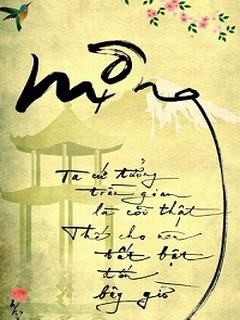 mộng
Ta cứ tưởng
trần gian
là cõi thật
Thế cho nên
tất bật
đến
bây giờ